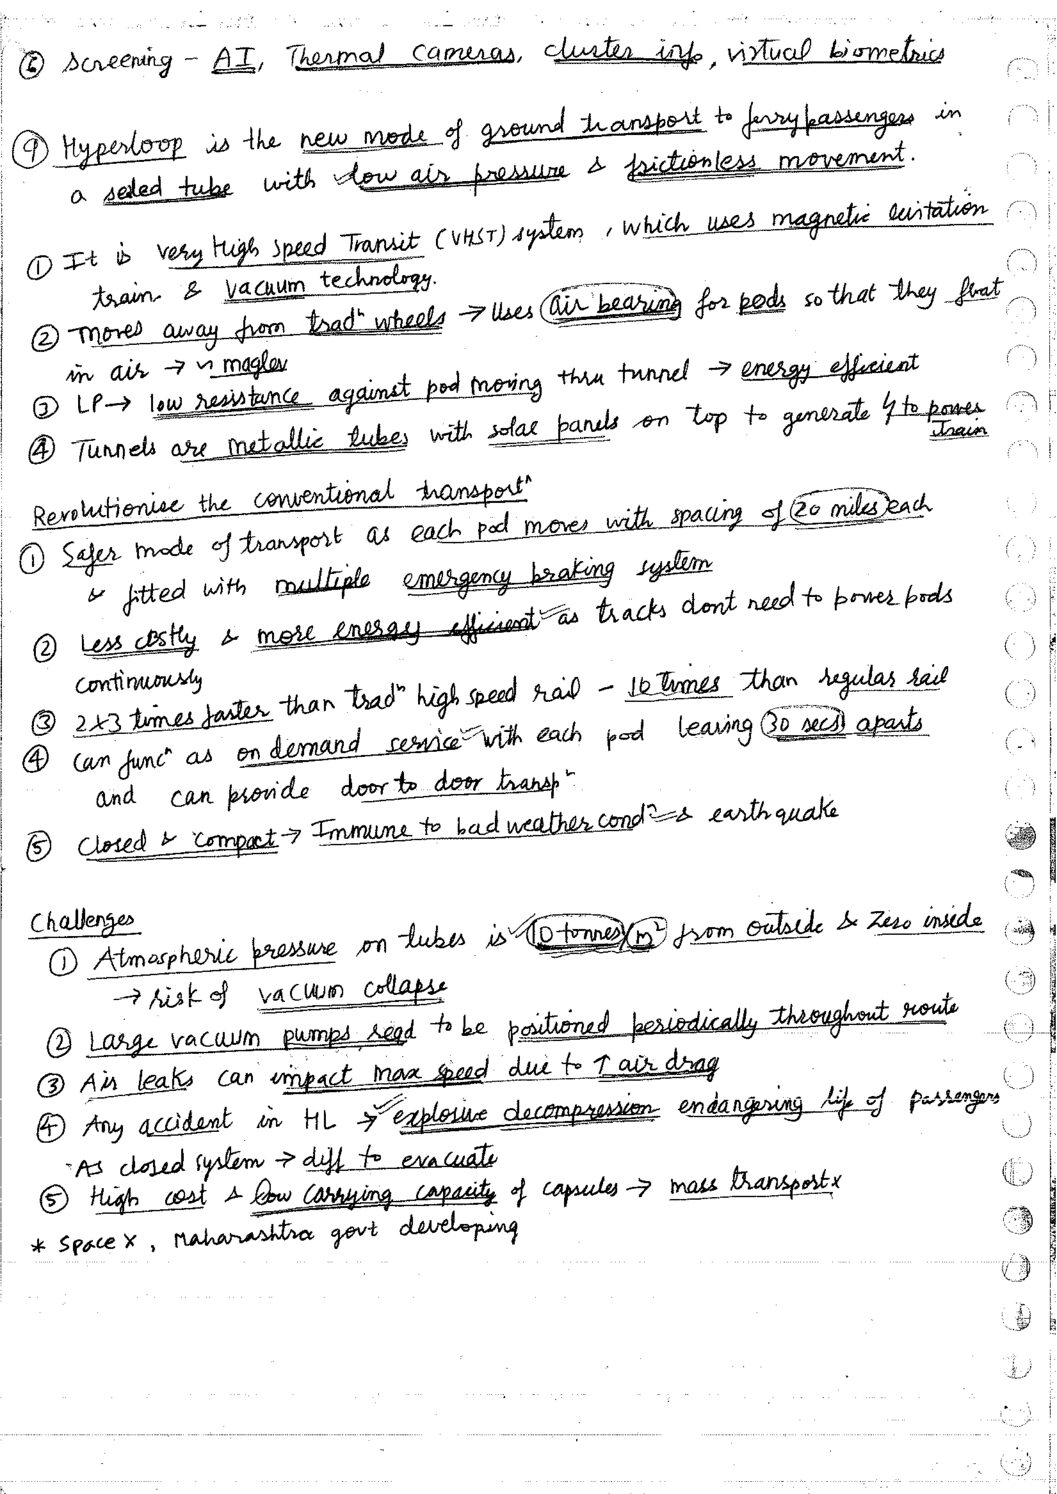 ⑥ Screening - AI, Thermal Cameras, cluster info, virtual biometrics
⑨ Hyperloop is the new mode of ground transport to ferry passengers in
a seled tube with low air pressure & frictionless movement.
① It is very High Speed Transit (VHST) system, which uses magnetic levitation
train & vacuum technology.
② Moves away from tradⁿ wheels → Uses air bearing for pods so that they float
in air → ~ maglev
③ LP → low resistance against pod moving thru tunnel → energy efficient
④ Tunnels are metallic tubes with solar panels on top to generate ϟ to power
Train
Revolutionise the conventional transportⁿ
① Safer mode of transport as each pod moves with spacing of 20 miles each
& fitted with multiple emergency braking system
② Less costly & more energy efficient as tracks dont need to power pods
continuously
③ 2x3 times faster than tradⁿ high speed rail - 10 times than regular rail
④ Can funcⁿ as on demand service with each pod leaving 30 secs aparts
and can provide door to door transpⁿ
⑤ Closed & compact → Immune to bad weather condⁿ & earthquake
Challenges
① Atmospheric pressure on tubes is 10 tonnes/m² from outside & Zero inside
→ risk of vacuum collapse
② Large vacuum pumps reqd to be positioned periodically throughout route
③ Air leaks can impact max speed due to ↑ air drag
④ Any accident in HL → explosive decompression endangering life of passengers
As closed system → diff to evacuate
⑤ High cost & low carrying capacity of capsules → mass transport x
* Space X, Maharashtra govt developing